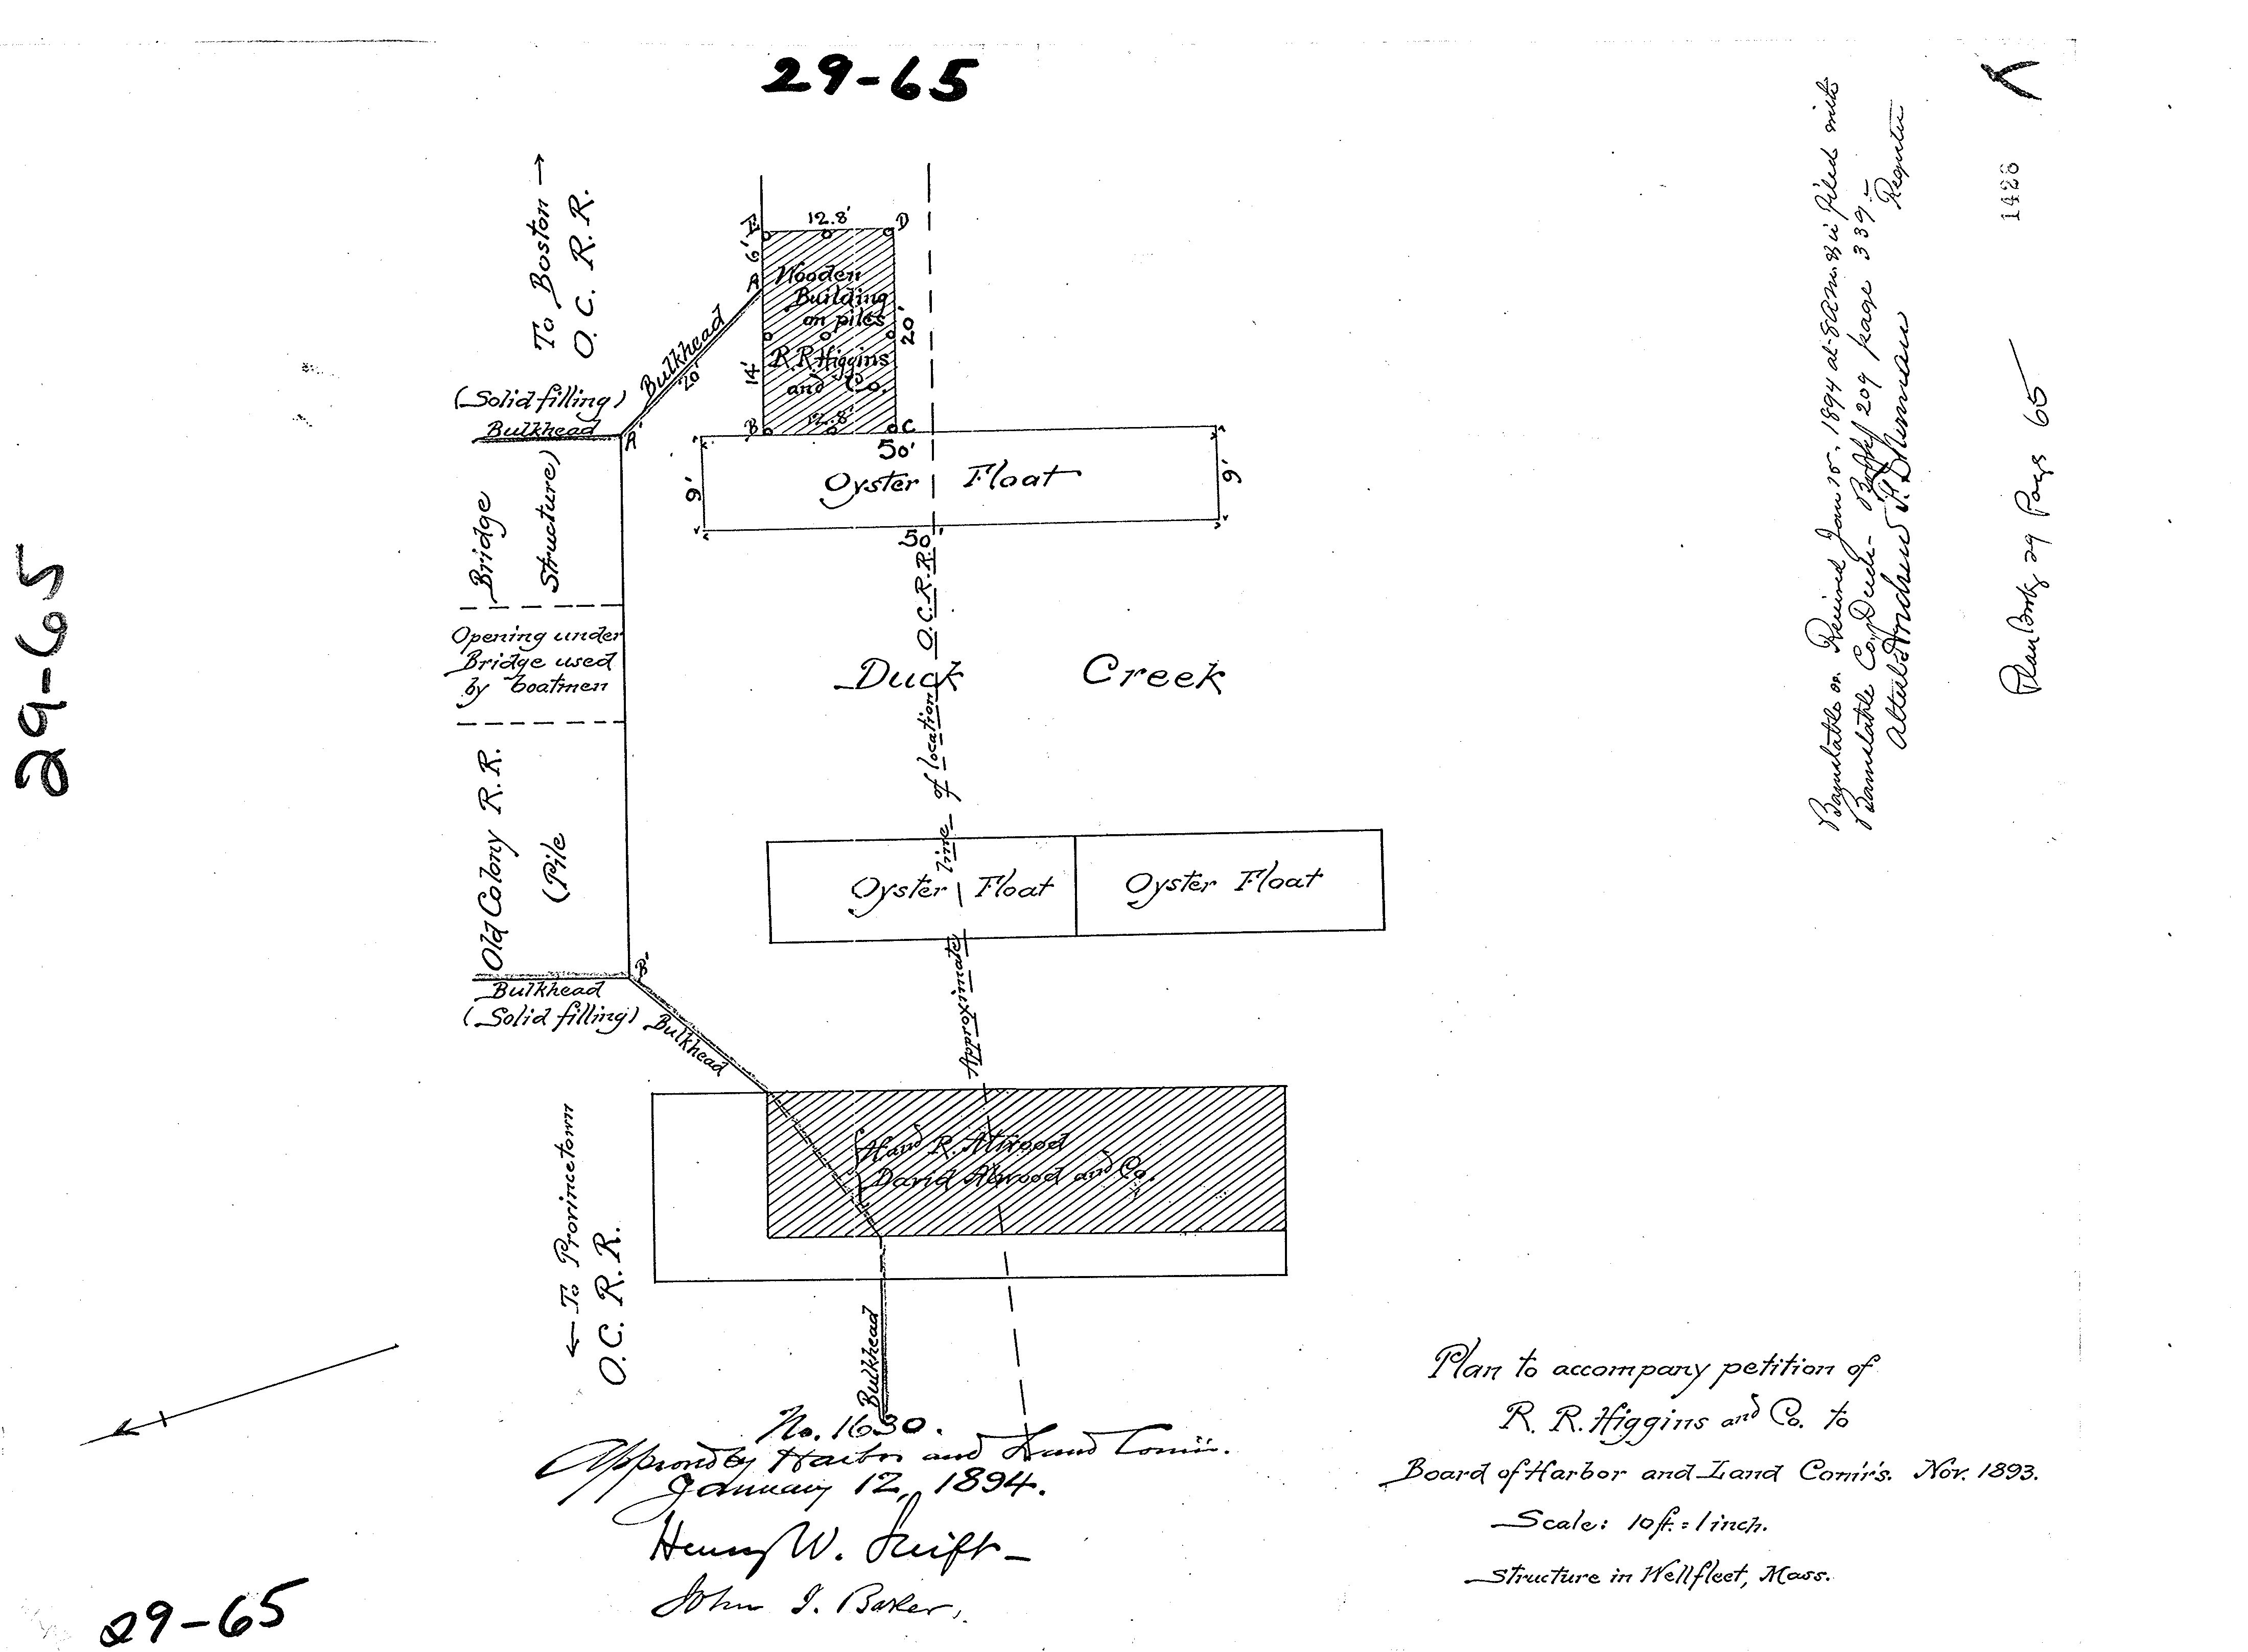 29-65
29-65
29-65
To Boston →
O. C. R. R.
E 12.8' D
6'
A
Wooden
Building
on piles
20'
R. R. Higgins
and Co.
14'
12.8'
B C
Bulkhead
20'
(Solid filling)
Bulkhead
A'
50'
9' Oyster Float 9'
50'
Bridge
Structure)
Opening under
Bridge used
by boatmen
Old Colony R.R.
(Pile
Duck Creek
Approximate line of location O.C.R.R.
Oyster Float
Oyster Float
B'
Bulkhead
(Solid filling)
Bulkhead
← To Provincetown
O. C. R. R.
H and R. Atwood
David Atwood and Co.
Bulkhead
No. 1630.
Approved by Harbor and Land Com'rs.
January 12, 1894.
Henry W. Swift
John I. Baker.
Plan to accompany petition of
R. R. Higgins and Co. to
Board of Harbor and Land Com'rs. Nov. 1893.
Scale: 10 ft. = 1 inch.
Structure in Wellfleet, Mass.
Barnstable ss. Received Jan 15, 1894 at 8 A.M. filed with
Barnstable Co. Deeds Book 209 page 339.
Attest: Andrew F. Sherman Register
1428
Plan Book 29 Page 65